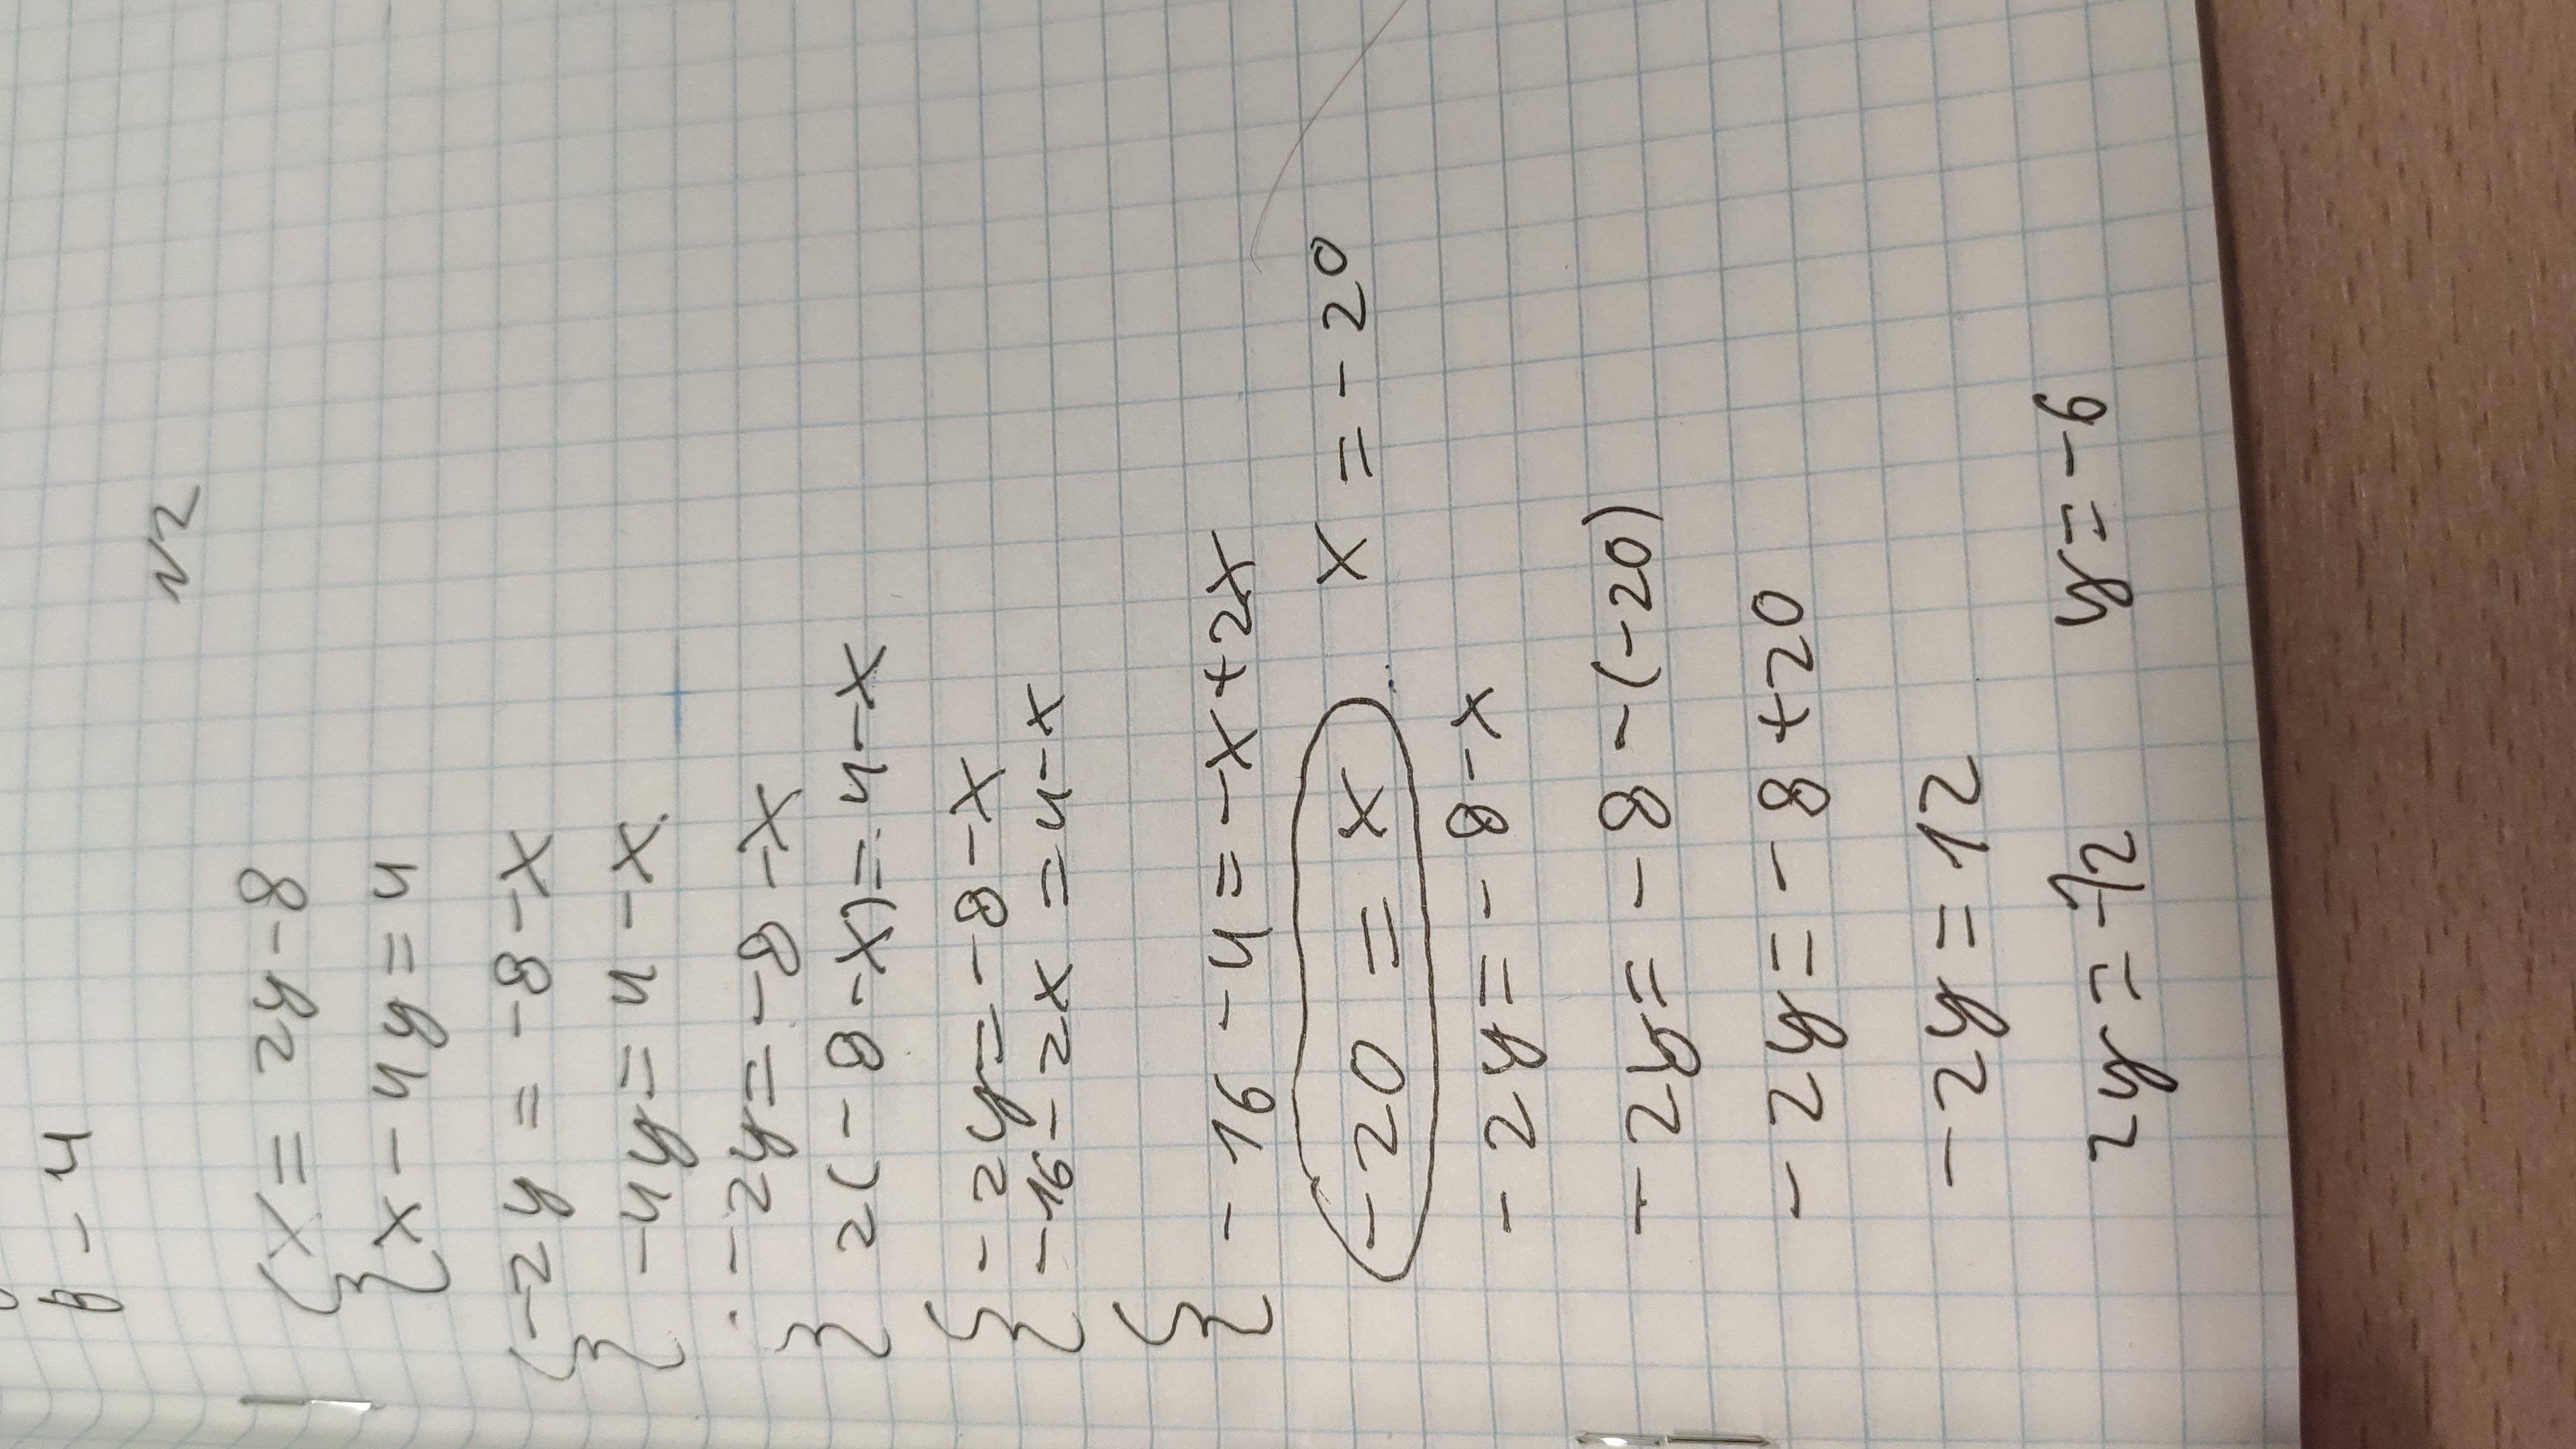 в - 4
N2
{ x = 2y - 8
x - 4y = 4
{ -2y = -8 - x
-4y = 4 - x
{ -2y = -8 - x
2(-8 - x) = 4 - x
{ -2y = -8 - x
-16 - 2x = 4 - x
{ -16 - 4 = -x + 2x
-20 = x x = -20
-2y = -8 - x
-2y = -8 - (-20)
-2y = -8 + 20
-2y = 12
2y = -12 y = -6